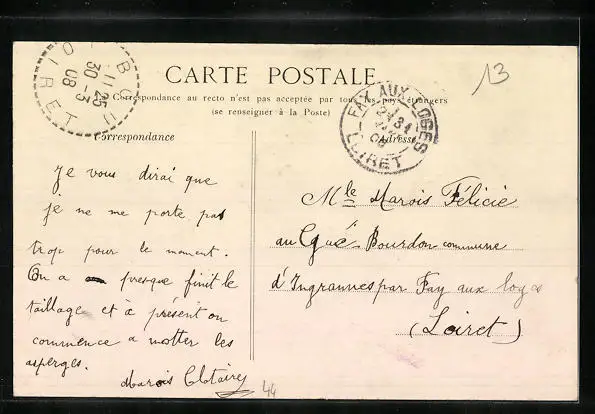 CARTE POSTALE
La Correspondance au recto n'est pas acceptée par tous les pays étrangers
(se renseigner à la Poste)
Correspondance
Adresse
11 25
30 -3
08
LOIRET
FAY AUX LOGES
31
08
LOIRET
13
Je vous dirai que
je ne me porte pas
trop pour le moment.
On a presque finit le
taillage et à présent on
commence a motter les
asperges.
Marois Clotaire
44
Mlle Marois Félicie
au Gué-Bourdon commune
d'Ingrannes par Fay aux loges
(Loiret)